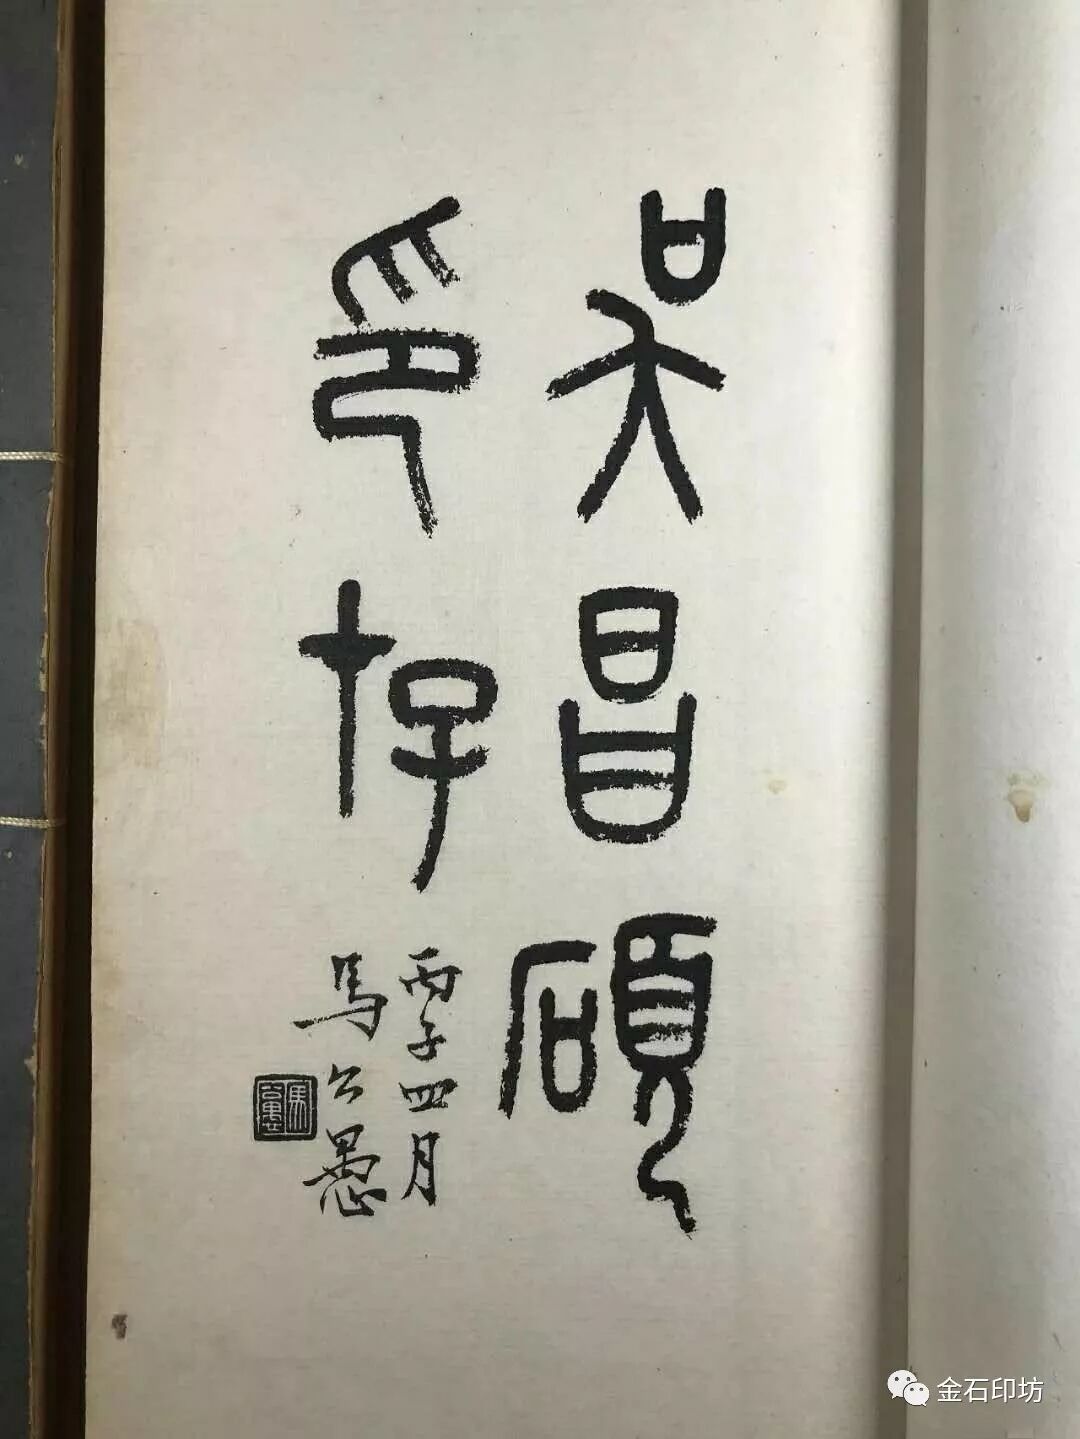 吴昌碩
印存
丙子四月
馬公愚
馬公愚
金石印坊